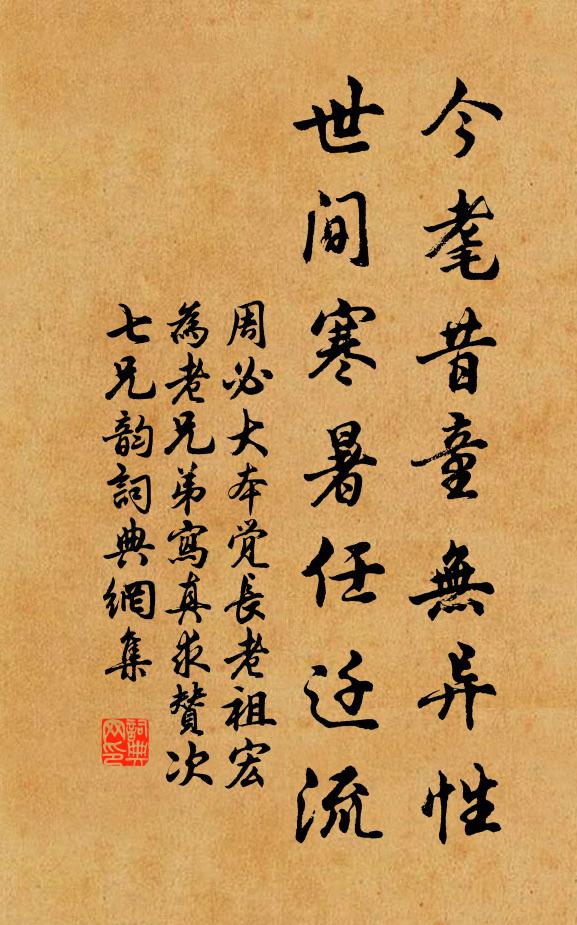 今耄昔童無异性
世间寒暑任迁流
周必大本觉長老祖宏
為老兄弟寫真求赞次
七兄韵詞典網集
詞典网印